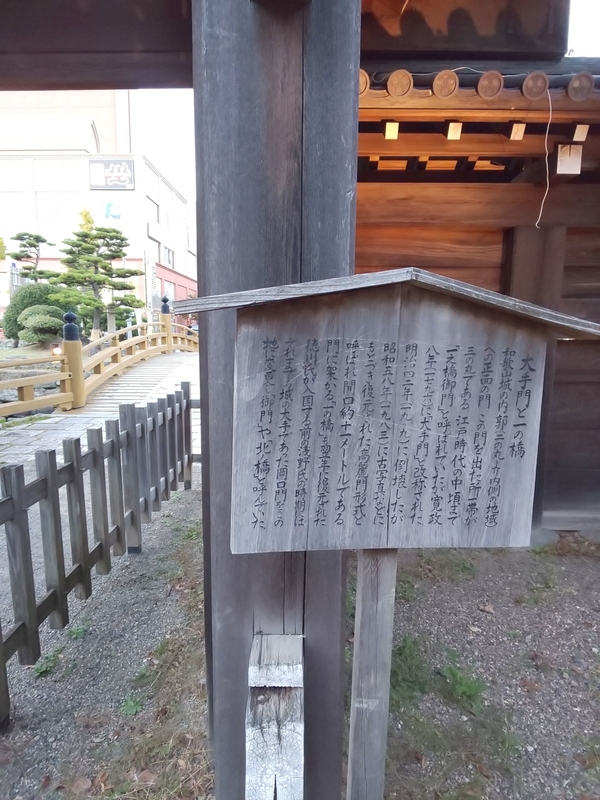 大手門と一の橋
和歌城の内郭三の丸より内側の地域
への正面の門 この門を出た所一帯が
三の丸である 江戸時代の中頃まで
一之橋御門と呼ばれていたが寛政
八年一七九六に大手門と改称された
明治四二年一九〇九に倒壊したが
昭和五八年一九八三に古写真などに
もとづき復元された高麗門形式と
呼ばれ開口約十一メートルである
門に架かる一の橋も翌年復元された
徳川氏が入国する前浅野氏の時期は
城の大手であった岡口門をこの
御門や北ノ橋と呼んでいた